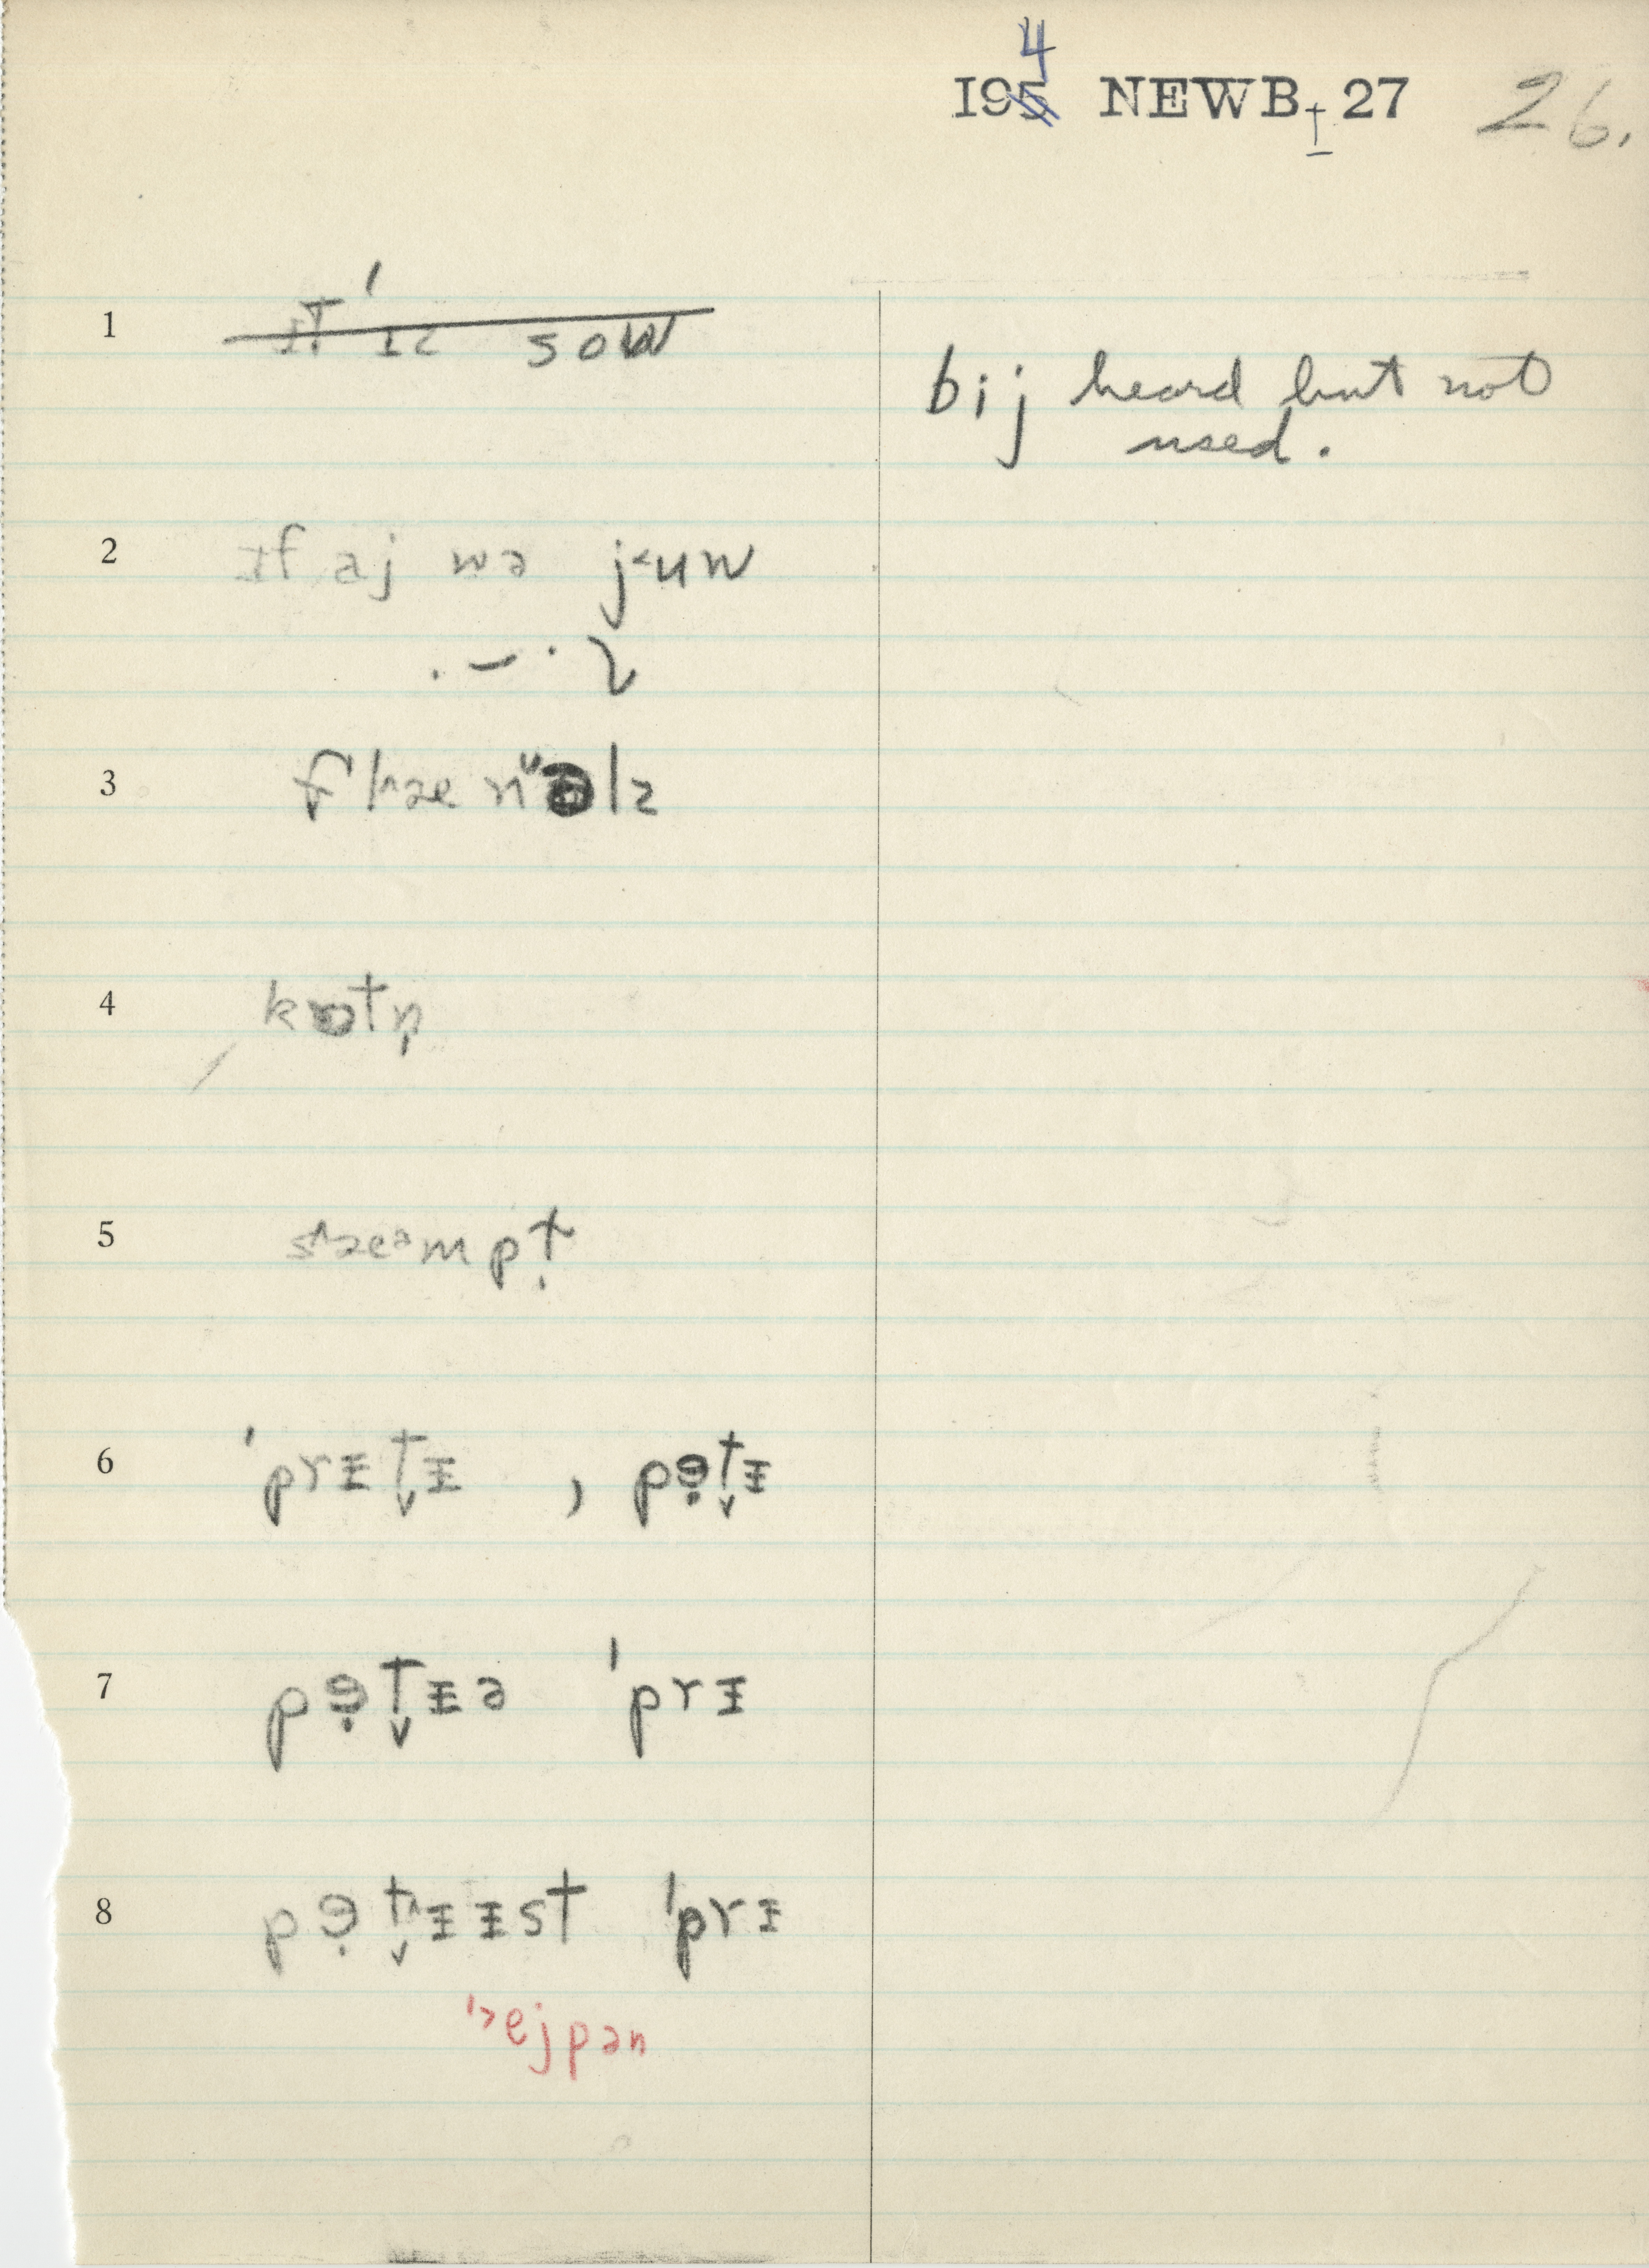 4
I95 NEWB I 27 26.
1 ɪt ɪz sow
bij heard but not
used.
2 ɪf aj wə j˂uw
3 flæn ə lz
4 kɒtn̩
5 stæᵊmpt̬
6 ˈprɪt̬ɪ , pət̬ɪ
7 pət̬ɪə ˈprɪ
8 pət̬ɪɪst ˈprɪ
ejpən